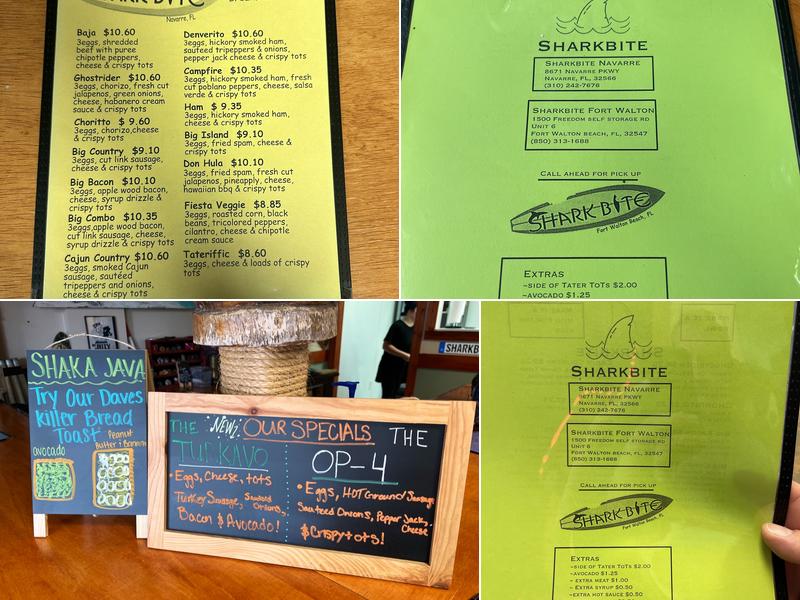 SHARK BITE
Navarre, FL
Baja $10.60
3eggs, shredded
beef with puree
chipotle peppers,
cheese & crispy tots
Ghostrider $10.60
3eggs, chorizo, fresh cut
jalapenos, green onions,
cheese, habanero cream
sauce & crispy tots
Choritto $ 9.60
3eggs, chorizo,cheese
& crispy tots
Big Country $9.10
3eggs, cut link sausage,
cheese & crispy tots
Big Bacon $10.10
3eggs, apple wood bacon,
cheese, syrup drizzle &
crispy tots
Big Combo $10.35
3eggs,apple wood bacon,
cut link sausage, cheese,
syrup drizzle & crispy tots
Cajun Country $10.60
3eggs, smoked Cajun
sausage, sautéed
tripeppers and onions,
cheese & crispy tots
Denverito $10.60
3eggs, hickory smoked ham,
sautéed tripeppers & onions,
pepper jack cheese & crispy tots
Campfire $10.35
3eggs, hickory smoked ham, fresh
cut poblano peppers, cheese, salsa
verde & crispy tots
Ham $ 9.35
3eggs, hickory smoked ham,
cheese & crispy tots
Big Island $9.10
3eggs, fried spam, cheese &
crispy tots
Don Hula $10.10
3eggs, fried spam, fresh cut
jalapenos, pineapply, cheese,
hawaiian bbq & crispy tots
Fiesta Veggie $8.85
3eggs, roasted corn, black
beans, tricolored peppers,
cilantro, cheese & chipotle
cream sauce
Tateriffic $8.60
3eggs, cheese & loads of crispy
tots
SHARKBITE
SHARKBITE NAVARRE
8671 NAVARRE PKWY
NAVARRE, FL, 32566
(310) 242-7676
SHARKBITE FORT WALTON
1500 FREEDOM SELF STORAGE RD
UNIT 6
FORT WALTON BEACH, FL, 32547
(850) 313-1688
CALL AHEAD FOR PICK UP
SHARK BITE
Fort Walton Beach, FL
EXTRAS
~SIDE OF TATER TOTS $2.00
~AVOCADO $1.25
SHAKA JAVA
Try Our Daves
killer Bread
Toast
Peanut
Butter + Banana
avocado
SHARKB
THE NEW! OUR SPECIALS THE
TURKAVO
• Eggs, Cheese, tots
Turkey Sausage, Sauteed
Onions,
Bacon & Avocado!
OP-4
• Eggs, HOT Ground Sausage
Sauteed Onions, Pepper Jack,
Cheese
& Crispy tots!
SHARKBITE
SHARKBITE NAVARRE
8671 NAVARRE PKWY
NAVARRE, FL, 32566
(310) 242-7676
SHARKBITE FORT WALTON
1500 FREEDOM SELF STORAGE RD
UNIT 6
FORT WALTON BEACH, FL, 32547
(850) 313-1688
CALL AHEAD FOR PICK UP
SHARK BITE
Fort Walton Beach, FL
EXTRAS
~SIDE OF TATER TOTS $2.00
~AVOCADO $1.25
~ EXTRA MEAT $1.00
~ EXTRA SYRUP $0.50
~EXTRA HOT SAUCE $0.50